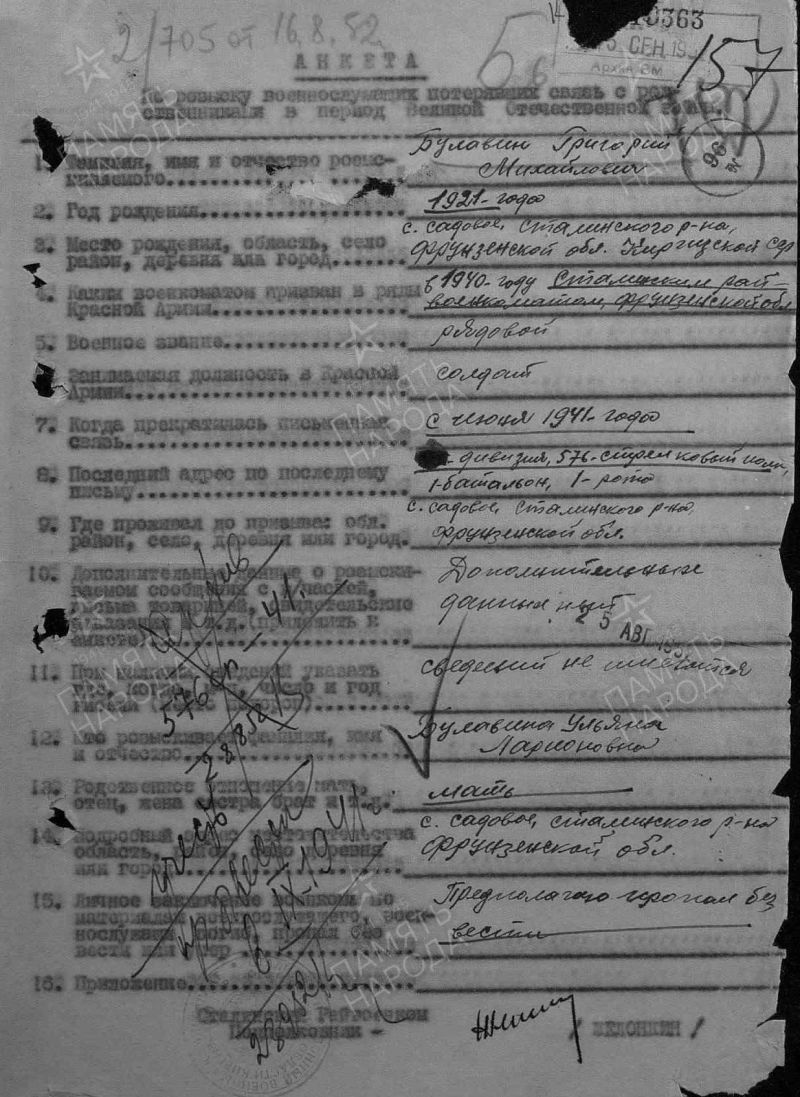 2/705 от 16.8.52
10363
СЕН
Архив вм
157
АНКЕТА
56
По розыску военнослужащих потерявших связь с род-
ственниками в период Великой Отечественной войны.
96
1. Фамилия, имя и отчество розыс-
киваемого
Булавин Григорий
Михайлович
2. Год рождения
1921- года
3. Место рождения, область, село
район, деревня или город
с. садовое, Сталинского р-на,
Фрунзенской обл. Киргизской ССР
4. Каким военкоматом призван в ряды
Красной Армии
в 1940-году Сталинским рай-
военкоматом, Фрунзенской обл
5. Военное звание
рядовой
Занимаемая должность в Красной
Армии
солдат
7. Когда прекратилась письменная
связь
с июня 1941-года
8. Последний адрес по последнему
письму
дивизия, 576-стрелковый полк,
1-батальон, 1-рота
9. Где проживал до призыва: обл.
район, село, деревня или город.
с. садовое, Сталинского р-на,
Фрунзенской обл.
10. Дополнительные данные о розыски-
ваемом сообщения с частей,
письма товарищей, свидетельские
показания и т.д. (приложить к
анкете)
Дополнительных
данных нет
25 АВГ
11. При
год
сведений не имеется
12. Кто разыскивает фамилия, имя
и отчество
Булавина Ульяна
Ларионовна
13. Родственное отношение мать,
отец, жена сестра брат и т.д.
мать
14. Подробный
область, район, село деревня
или город
с. садовое, Сталинского р-на
Фрунзенской обл.
15. Личное заключение военкома по
материалам
вести или умер
Предполагаю пропал без
вести
16. Приложение
576 сп - 41г.
28852
пр. б/вести
в IX-1941г.
28952
Сталинский Райвоенком
Подполковник -
/ ШЕЛОНКИН /
ПАМЯТЬ
НАРОДА